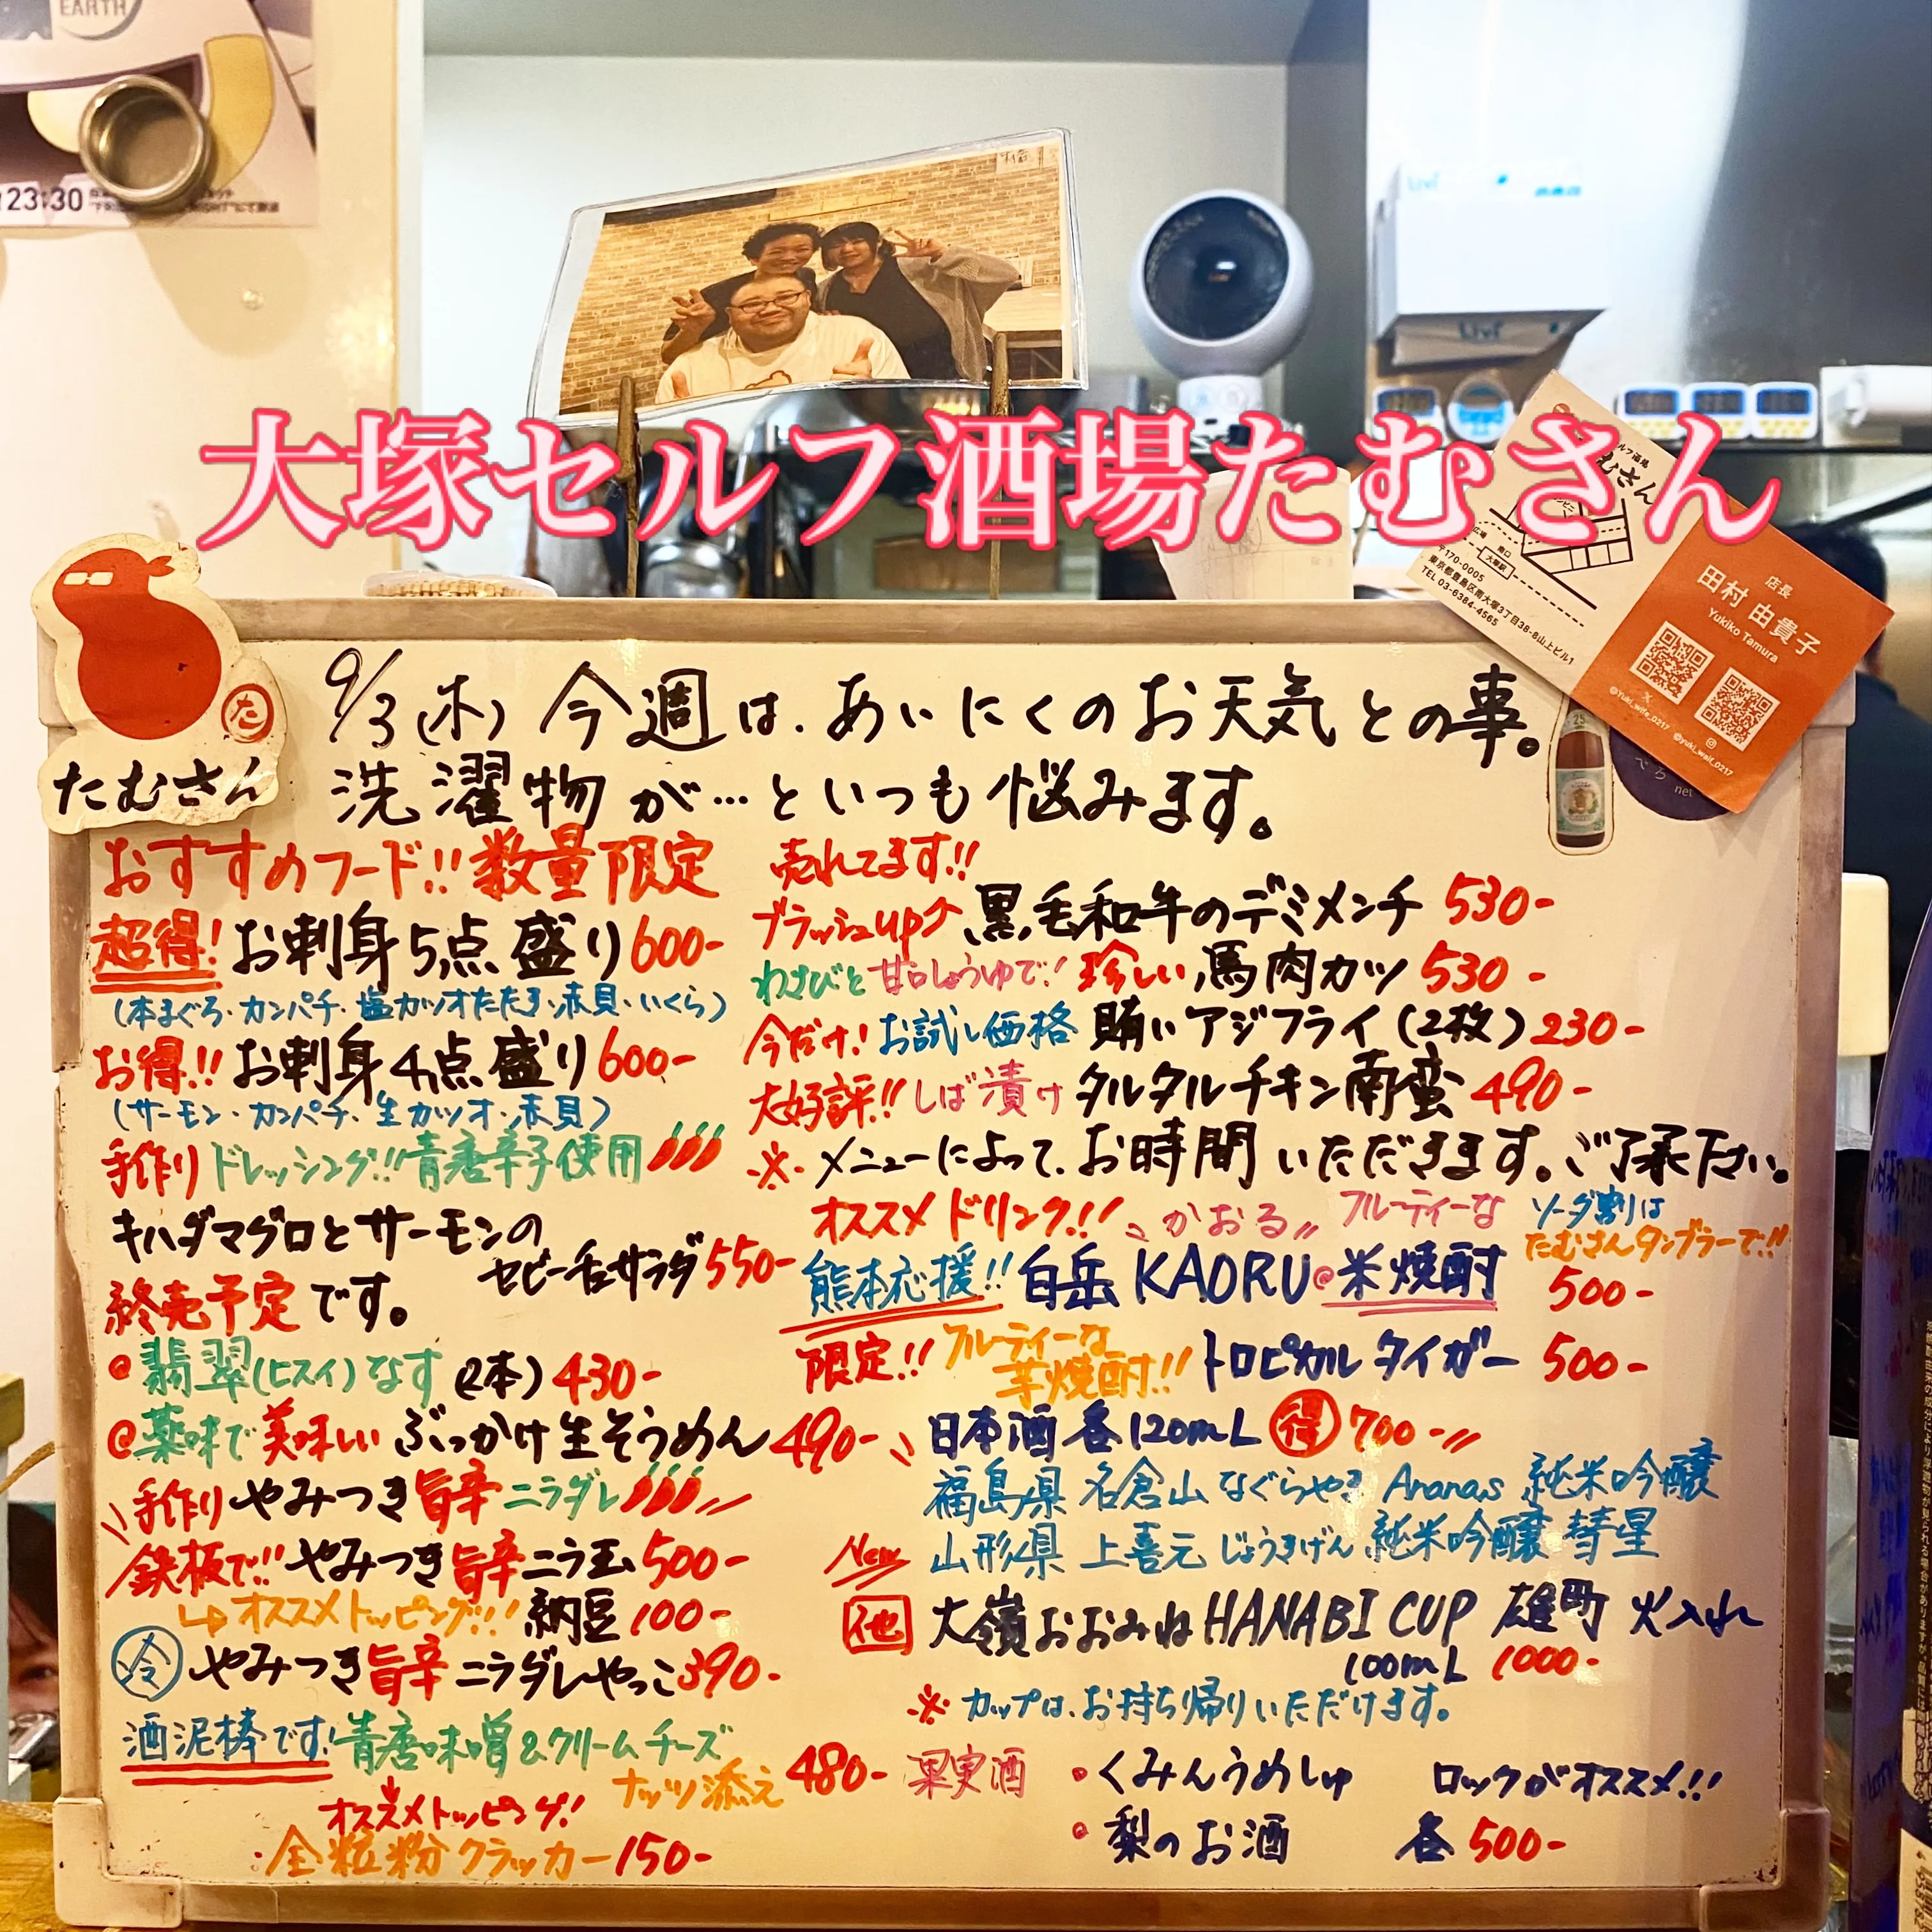 EARTH
23:30
大塚セルフ酒場たむさん
〒170-0005
東京都豊島区南大塚3丁目38-8山上ビル1
TEL 03-6384-4565
大塚駅
南口
店長
田村 由貴子
Yukiko Tamura
@Yuki_wife_0217
@yuki_waif_0217
net
た
たむさん
9/3(木) 今週は、あいにくのお天気との事。
洗濯物が…といつも悩みます。
おすすめフード!!数量限定
超得!お刺身5点盛り600-
(本まぐろ・カンパチ・塩カツオたたき・赤貝・いくら)
お得!!お刺身4点盛り600-
(サーモン・カンパチ・生カツオ・赤貝)
手作りドレッシング!!青唐辛子使用
キハダマグロとサーモンの
セビーチェサラダ550-
終売予定です。
翡翠(ヒスイ)なす(2本)430-
薬味で美味しいぶっかけ生そうめん490-
手作りやみつき旨辛ニラダレ
鉄板で!!やみつき旨辛ニラ玉500-
↳オススメトッピング!!!納豆100-
冷 やみつき旨辛ニラダレやっこ390-
酒泥棒です!青唐味噌&クリームチーズ
ナッツ添え480-
オススメトッピング!
全粒粉クラッカー150-
売れてます!!
ブラッシュup↑黒毛和牛のデミメンチ530-
わさびと甘口しょうゆで!珍しい馬肉カツ530-
今だけ!お試し価格 賄いアジフライ(2枚)230-
大好評!!しば漬けタルタルチキン南蛮490-
※メニューによって、お時間いただきます。ご了承下さい。
オススメドリンク!!
かおる
フルーティーな
ソーダ割りは
たむさんタンブラーで!!
熊本応援!!白岳KAORU米焼酎 500-
限定!!フルーティーな
芋焼酎!!トロピカルタイガー 500-
日本酒各120mL 得700-
福島県 名倉山 なぐらやま Ananas 純米吟醸
New 山形県 上喜元 じょうきげん 純米吟醸 彗星
他 大嶺おおみねHANABI CUP 雄町 火入れ
100mL 1000-
※カップは、お持ち帰りいただけます。
果実酒 ・くみんうめしゅ ロックがオススメ!!
・梨のお酒 各500-